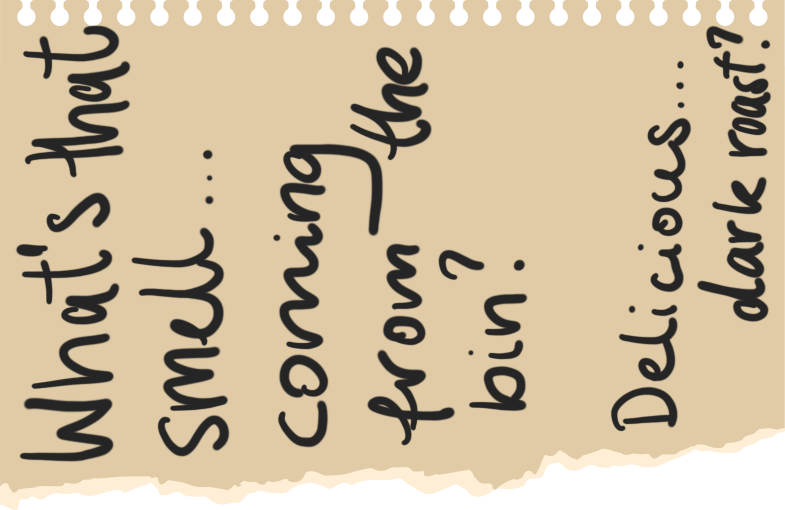 What's that
smell...
coming the
from
bin?
Delicious...
dark roast?